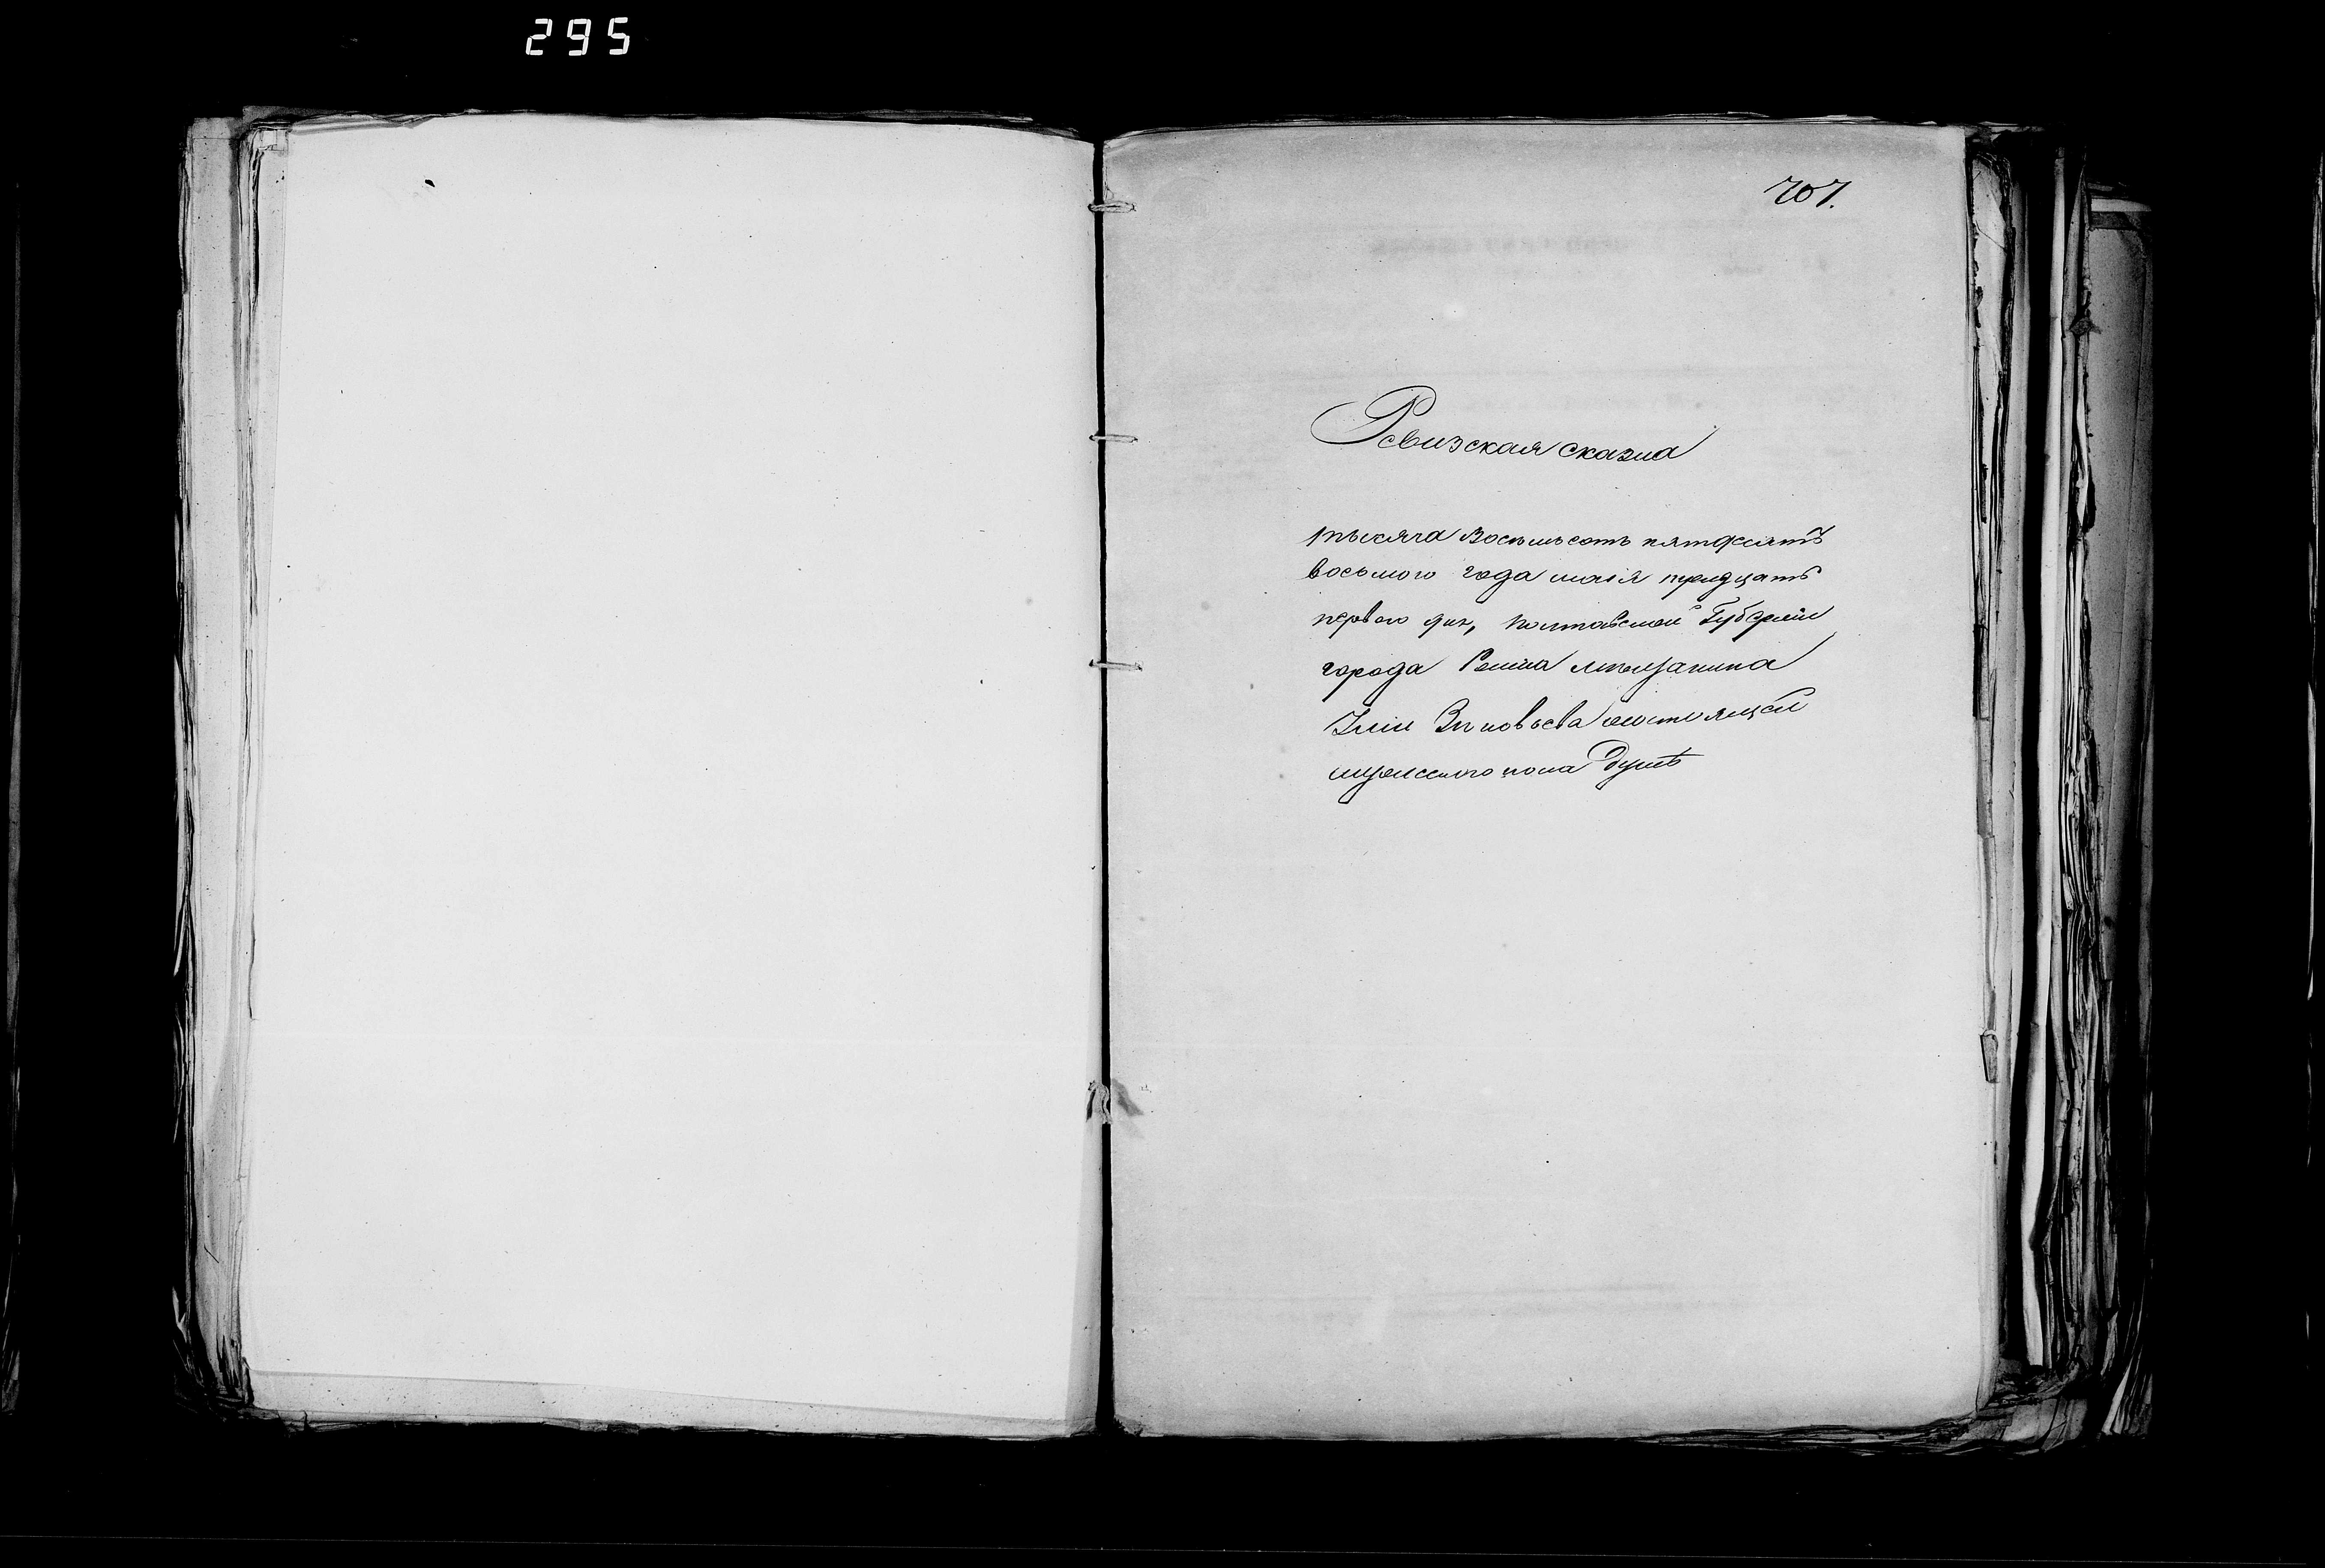 295
707.
Ревизская сказка
тысяча восемьсотъ пятдесятъ
восьмого года маія тридцать
первого дня, Полтавской Губерніи
города Ромна мѣщанина
Зиновьева состоящей
мужескаго пола душѣ